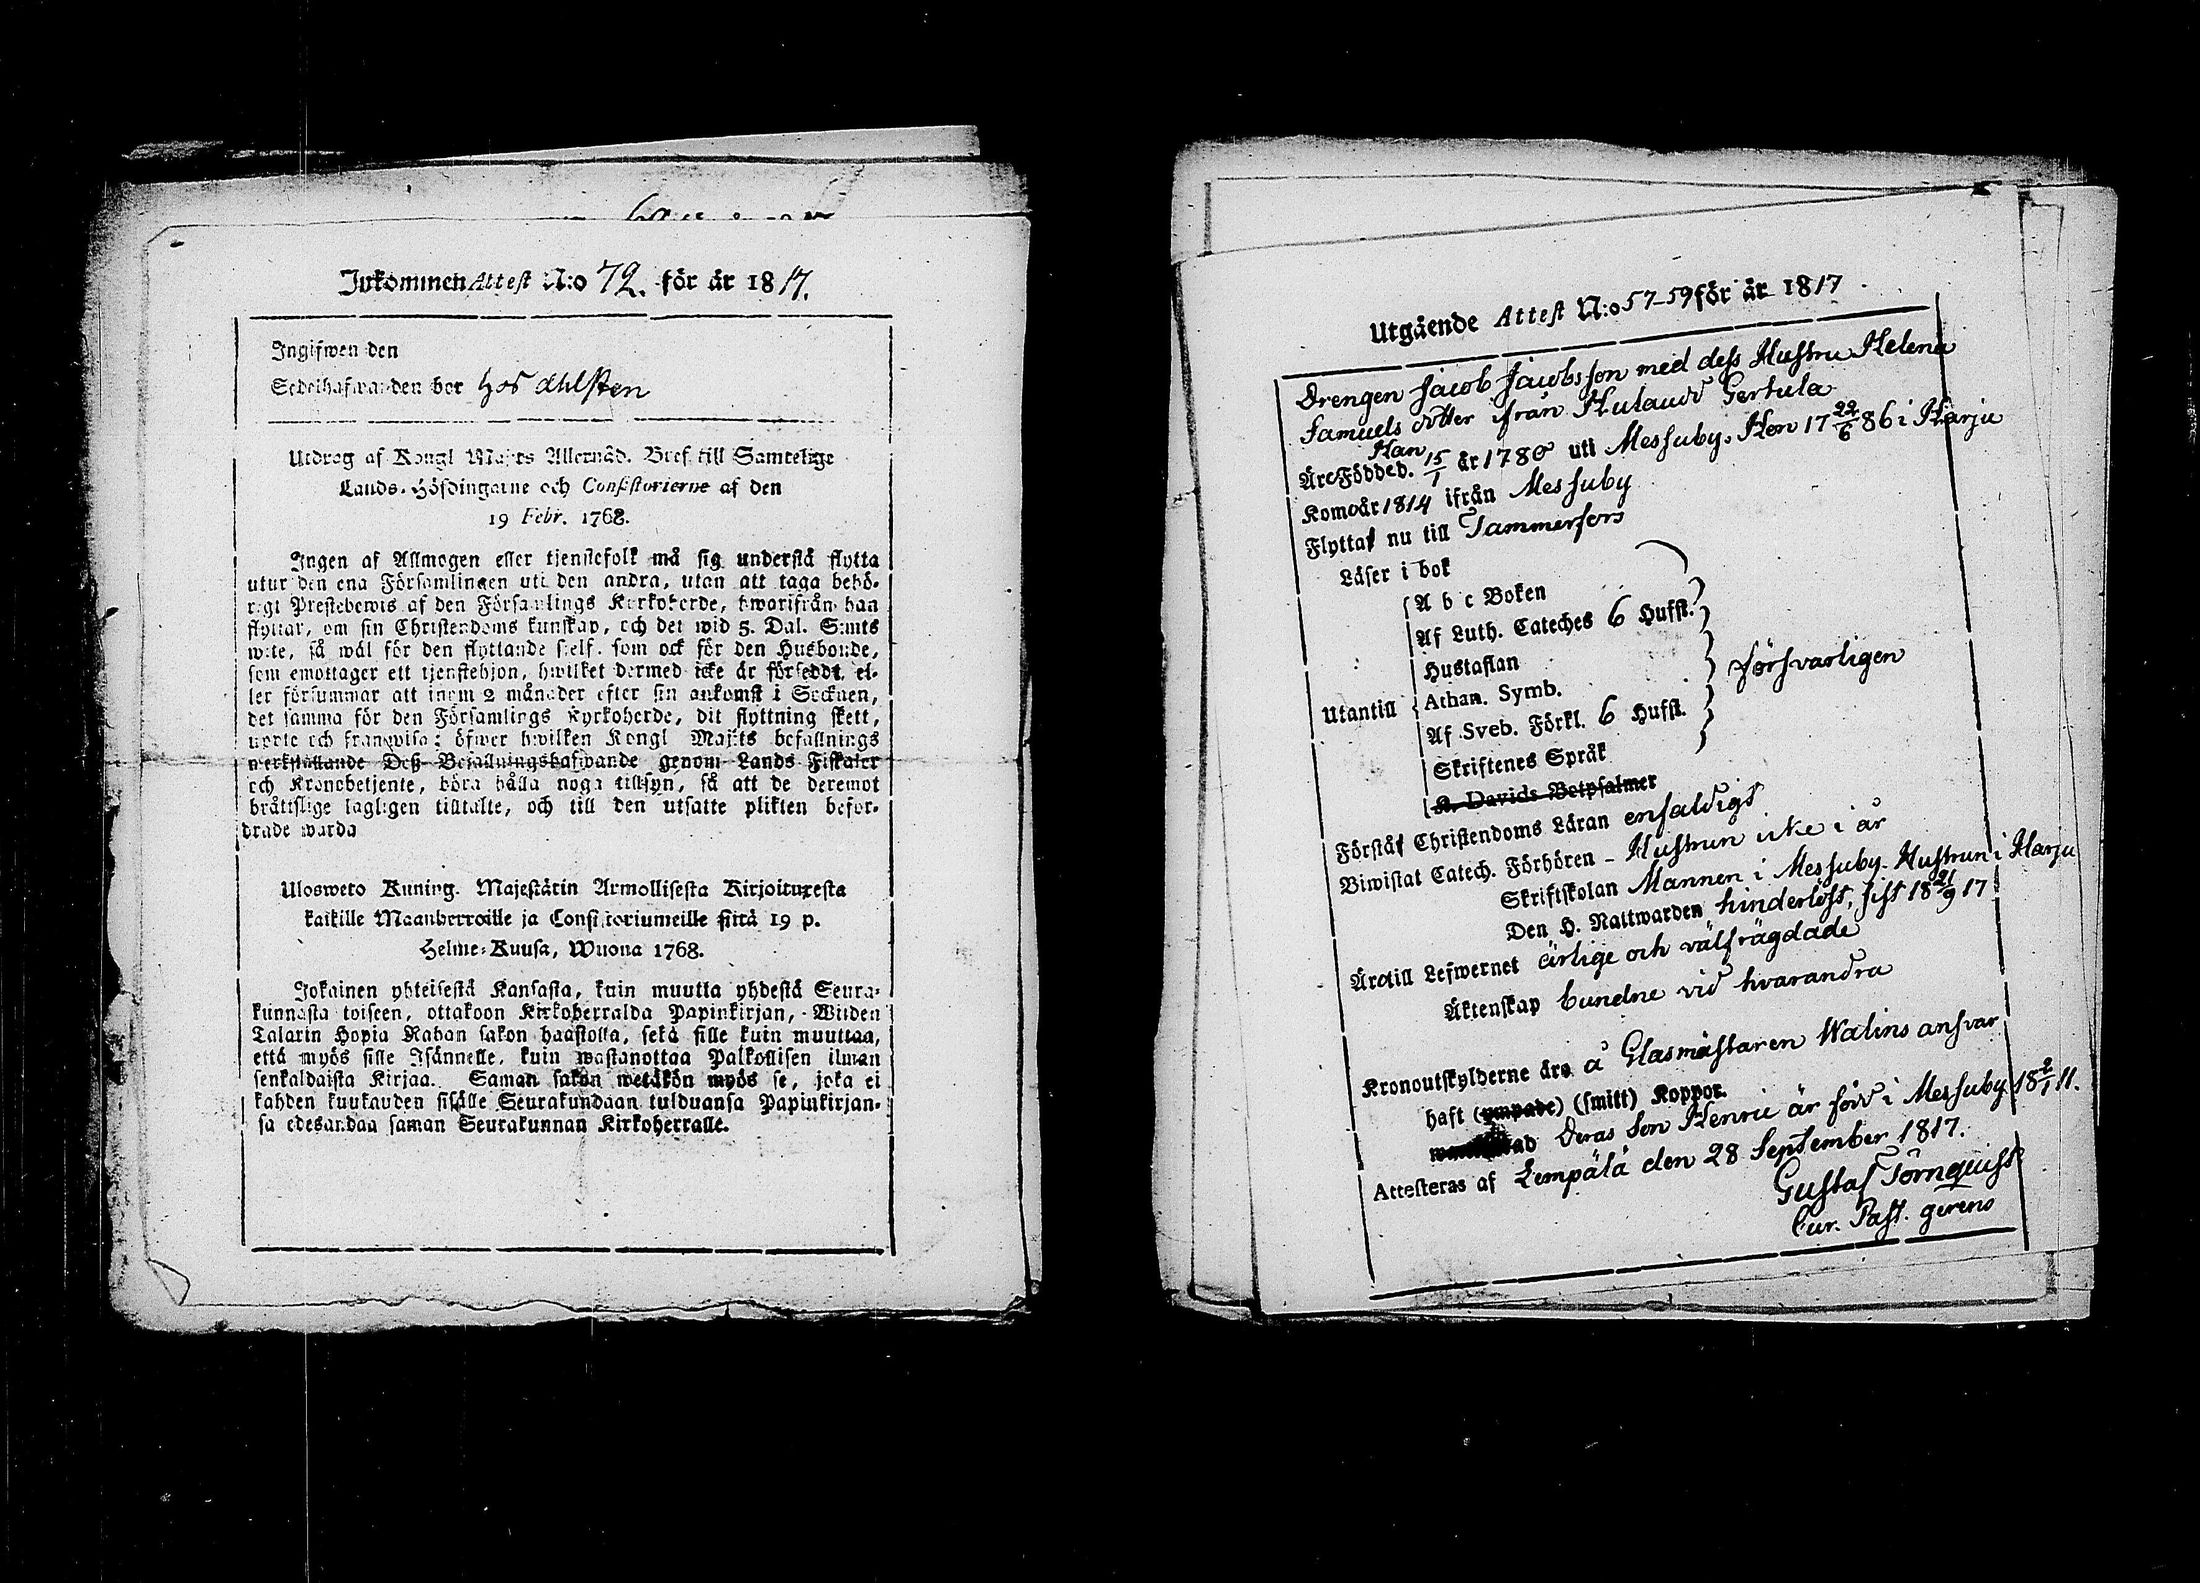 Inkommen Attest N:o 72. för år 1817.
Ingifwen den
Sedelhafwanden bor hos Ahlsten
Utdrag af Kongl Maj:ts Allernåd. Bref till Samtelige
Lands-Höfdingarne och Consistorierne af den
19 Febr. 1768.
Ingen af Allmogen eller tjenstefolk må sig understå flytta
utur den ena Församlingen uti den andra, utan att taga behö-
rigt Prestebewis af den Församlings Kyrkoherde, hwarifrån han
flyttar, om sin Christendoms kunskap, och det wid 5. Dal. S:mts
wite, så wäl för den flyttande sjelf, som ock för den Husbonde,
som emottager ett tjenstehjon, hwilket dermed icke är försedt, el-
ler försummar att inom 2 månader efter sin ankomst i Socknen,
det samma för den Församlings Kyrkoherde, dit flyttning skett,
upte och framwisa: öfwer hwilken Kongl Maj:ts befallnings
werkställande Deß Befallningshafwande genom Lands Fiskaler
och Kronobetjente, böra hålla noga tillsyn, så att de deremot
bråttslige lagligen tilltalte, och till den utsatte plikten befor-
drade warda
Ulosweto Kuning. Majestätin Armollisesta Kirjoituxesta
kaikille Maanherroille ja Consistoriumeille siitä 19 p.
Helme-Kuusa, Wuona 1768.
Jokainen yhteisestä Kansasta, kuin muutta yhdestä Seura-
kunnasta toiseen, ottakoon Kirkoherralda Papinkirjan, Wiiden
Talarin Hopia Rahan sakon haastolla, sekä sille kuin muuttaa,
että myös sille Isännelle, kuin wastanottaa Palkollisen ilman
senkaldaista Kirjaa. Saman sakon wetäkön myös se, joka ei
kahden kuukauden sisälle Seurakundaan tulduansa Papinkirjan-
sa edesandaa saman Seurakunnan Kirkoherralle.
Utgående Attest N:o 57-59 för år 1817
Drengen Jacob Jacobsson med dess Hustru Helena
Samuels dotter ifrån Kulaud Gertula
Han
Äro Födde d. 15/1 år 1780 uti Messuby. Hon 17 22/6 86 i Harju
Komo år 1814 ifrån Messuby
Flytta nu till Tammerfors
Läser i bok
A b c Boken
Af Luth. Cateches 6 Hufst.
Hustaflan
Utantill Athan. Symb. försvarligen
Af Sveb. Förkl. 6 Hufst.
Skriftenes Språk
K. Davids Botpsalmer
Förstå Christendoms Läran enfaldigt
Biwistat Catech. Förhören - Hustrun icke i år
Skriftskolan Mannen i Messuby. Hustrun i Harju
Den H. Nattwarden hinderlöst, sist 18 21/9 17
Äro till Lefwernet ärlige och välfrägdade
Äktenskap bundne vid hvarandra
Kronoutskylderne äro å Glasmästaren Walins ansvar
haft (ympade) (smitt) Koppor.
Deras Son Henric är född i Messuby 18 2/1 11.
Attesteras af Lempälä den 28 September 1817.
Gustaf Törnquist
Cur. Past. gerens